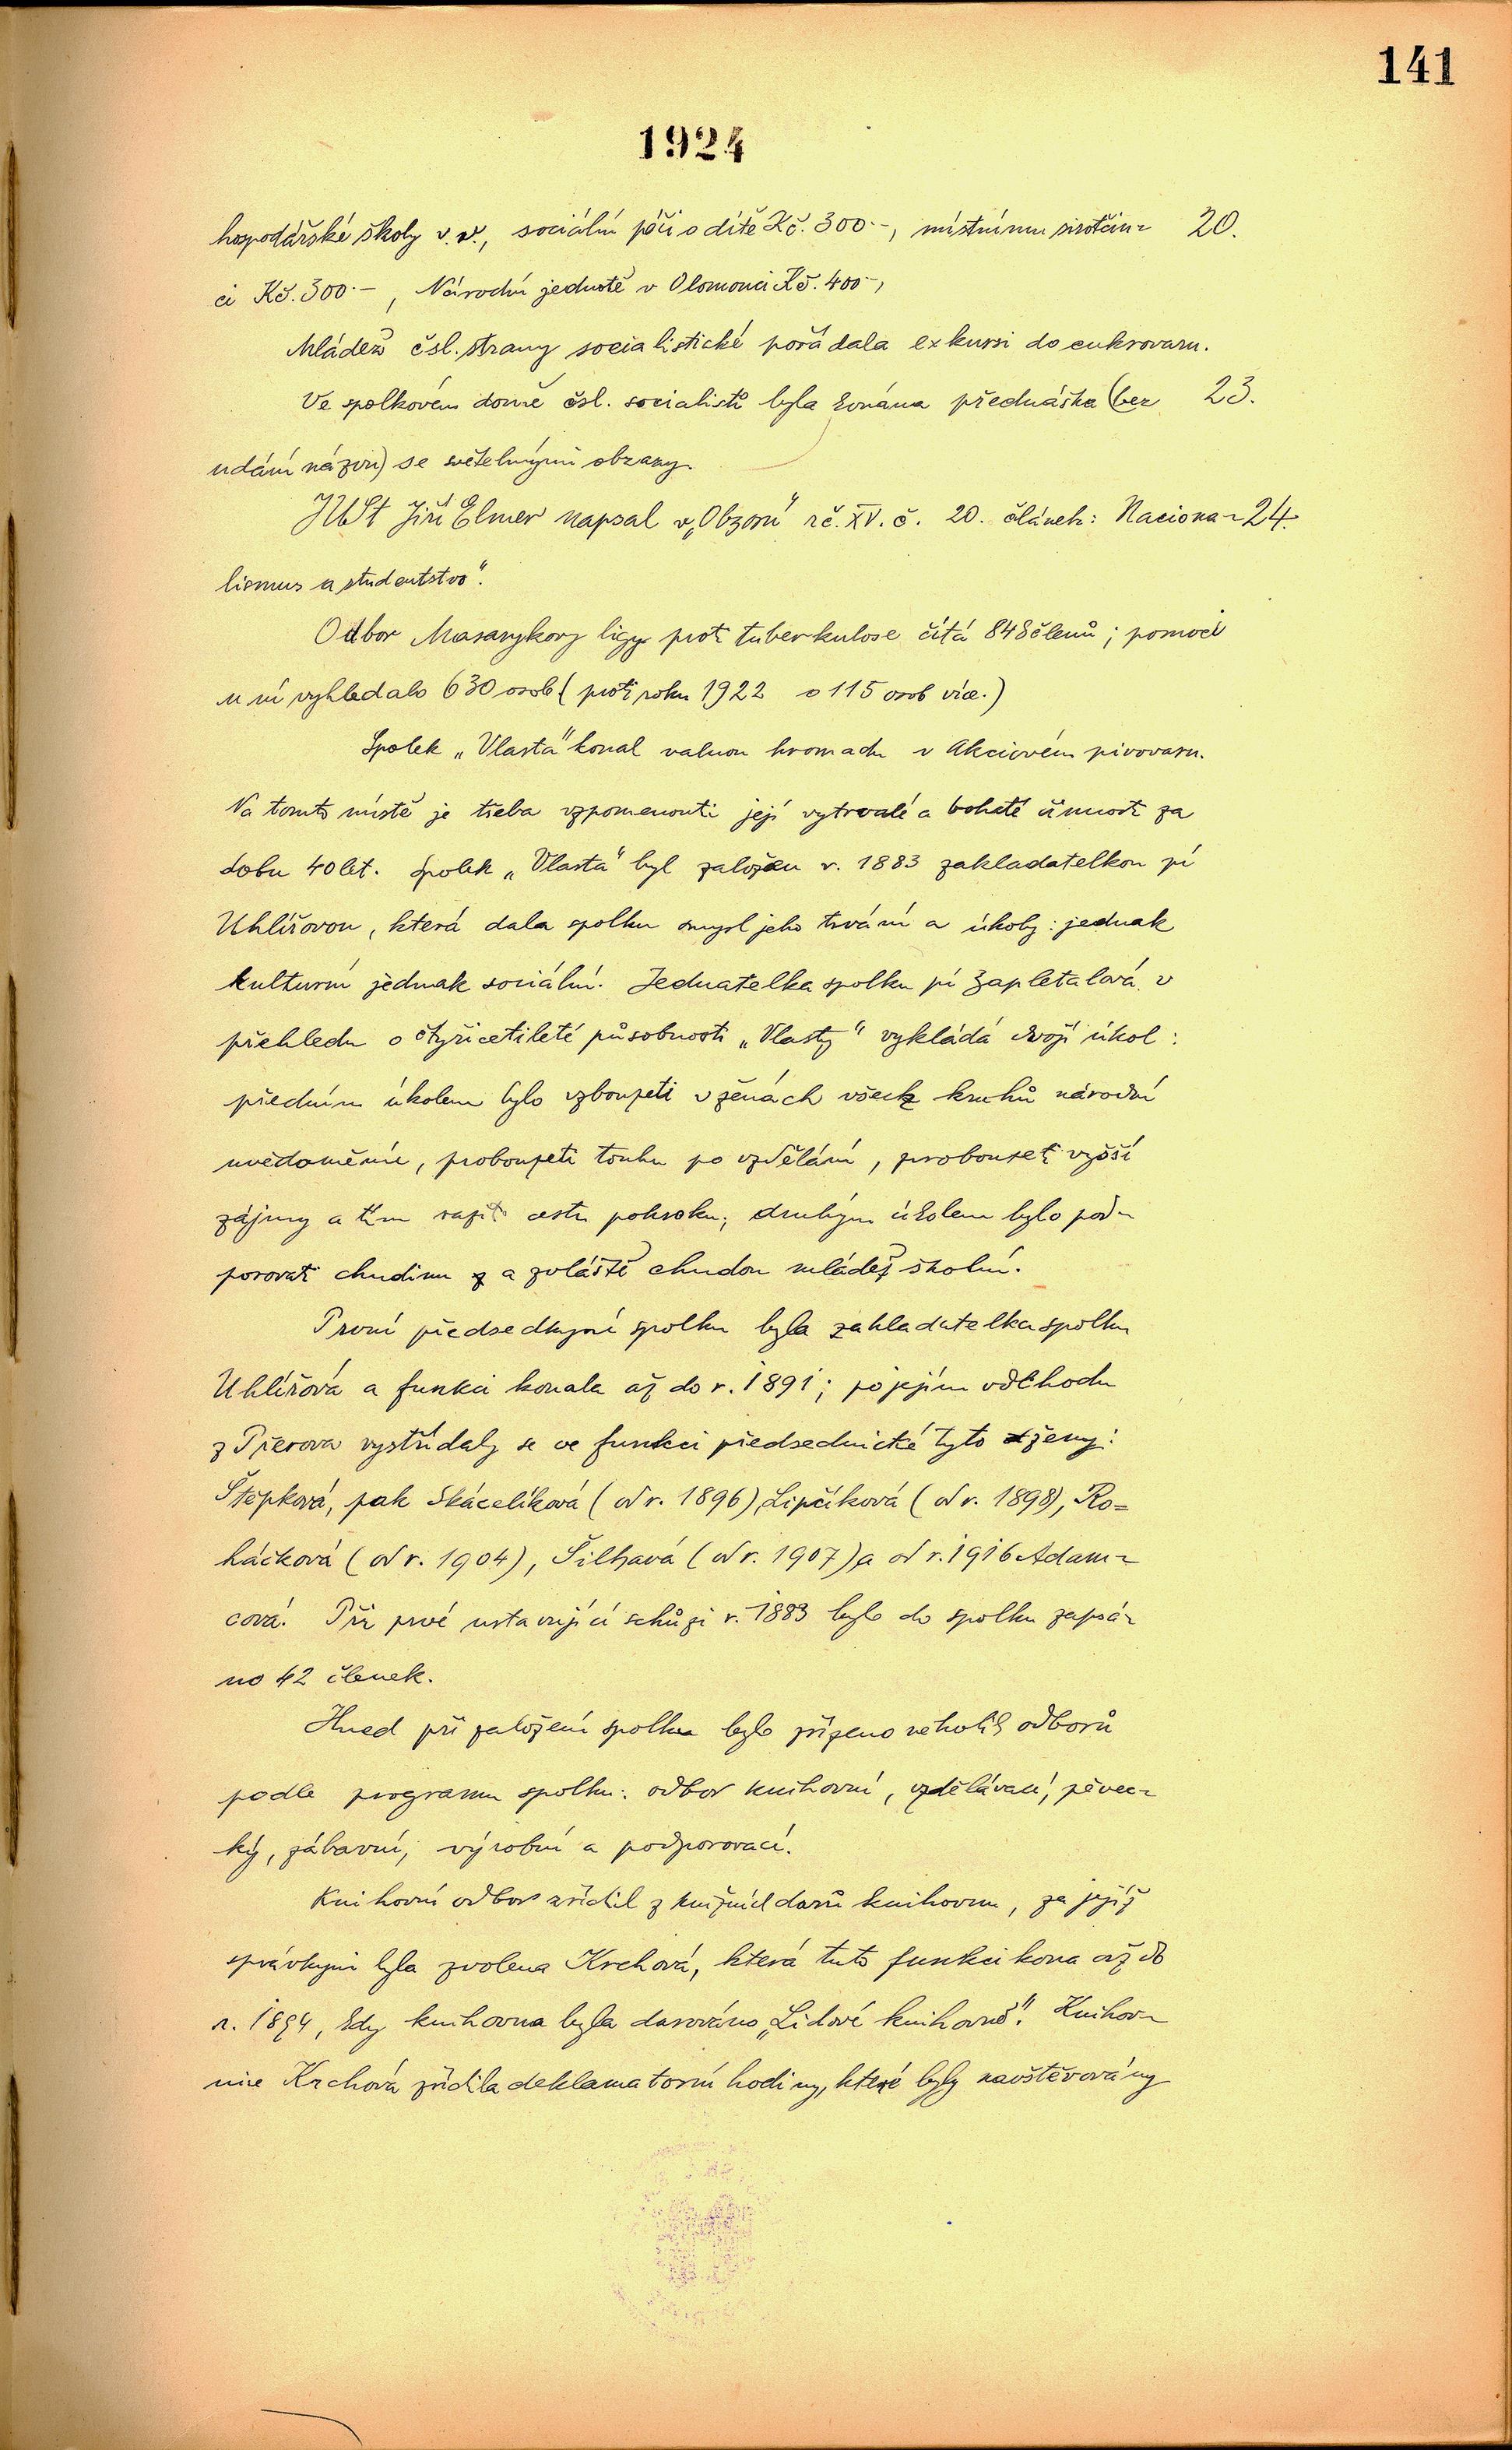 141
1924
hospodářské školy v. v., sociální péči o dítě Kč. 300·-, místnímu sirotčin- 20.
ci Kč. 300·-, Národní jednotě v Olomouci Kč. 400·-,
Mládež čsl. strany socialistické pořádala exkursi do cukrovaru.
Ve spolkovém domě čsl. socialistů byla konána přednáška (bez 23.
udání názvu) se světelnými obrazy.
JUSt Jiří Elmer napsal v „Obzoru" rč. XV. č. 20. článek: Naciona- 24.
lismus a studentstvo".
Odbor Masarykovy ligy proti tuberkulose čítá 848 členů; pomoci
u ní vyhledalo 630 osob (proti roku 1922 o 115 osob více.)
Spolek „Vlasta" konal valnou hromadu v Akciovém pivovaru.
Na tomto místě je třeba vzpomenouti její vytrvalé a bohaté činnosti za
dobu 40 let. Spolek „Vlasta" byl založen r. 1883 zakladatelkou pí
Uhlířovou, která dala spolku smysl jeho trvání a úkoly: jednak
kulturní jednak sociální. Jednatelka spolku pí Zapletalová v
přehledu o čtyřicetileté působnosti „Vlasty" vykládá svojí úkol:
předním úkolem bylo vzbouzeti v ženách všech kruhů národní
uvědomění, probouzeti touhu po vzdělání, probouzeti vyšší
zájmy a tím raziti cestu pokroku; druhým úkolem bylo pod-
porovati chudinu a zvláště chudou mládež školní.
První předsedkyní spolku byla zakladatelka spolku
Uhlířová a funkci konala až do r. 1891; po jejím odchodu
z Přerova vystřídaly se ve funkci předsednické tyto ženy:
Štěpková, pak Skácelíková (od r. 1896), Lipčíková (od r. 1898), Ro=
háčková (od r. 1904), Šilhavá (od r. 1907) a od r. 1916 Adam-
cová. Při prvé ustavující schůzi r. 1883 bylo do spolku zapsá-
no 42 členek.
Hned při založení spolku bylo zřízeno několik odborů
podle programu spolku: odbor knihovní, vzdělávací, pěvec-
ký, zábavní, výrobní a podporovací.
Knihovní odbor zřídil z knižních darů knihovnu, za jejíž
správkyni byla zvolena Krchová, která tuto funkci kona až do
r. 1894, kdy knihovna byla darováno „Lidové knihovně". Knihov-
nice Krchová zřídila deklamatorní hodiny, které byly navštěvovány